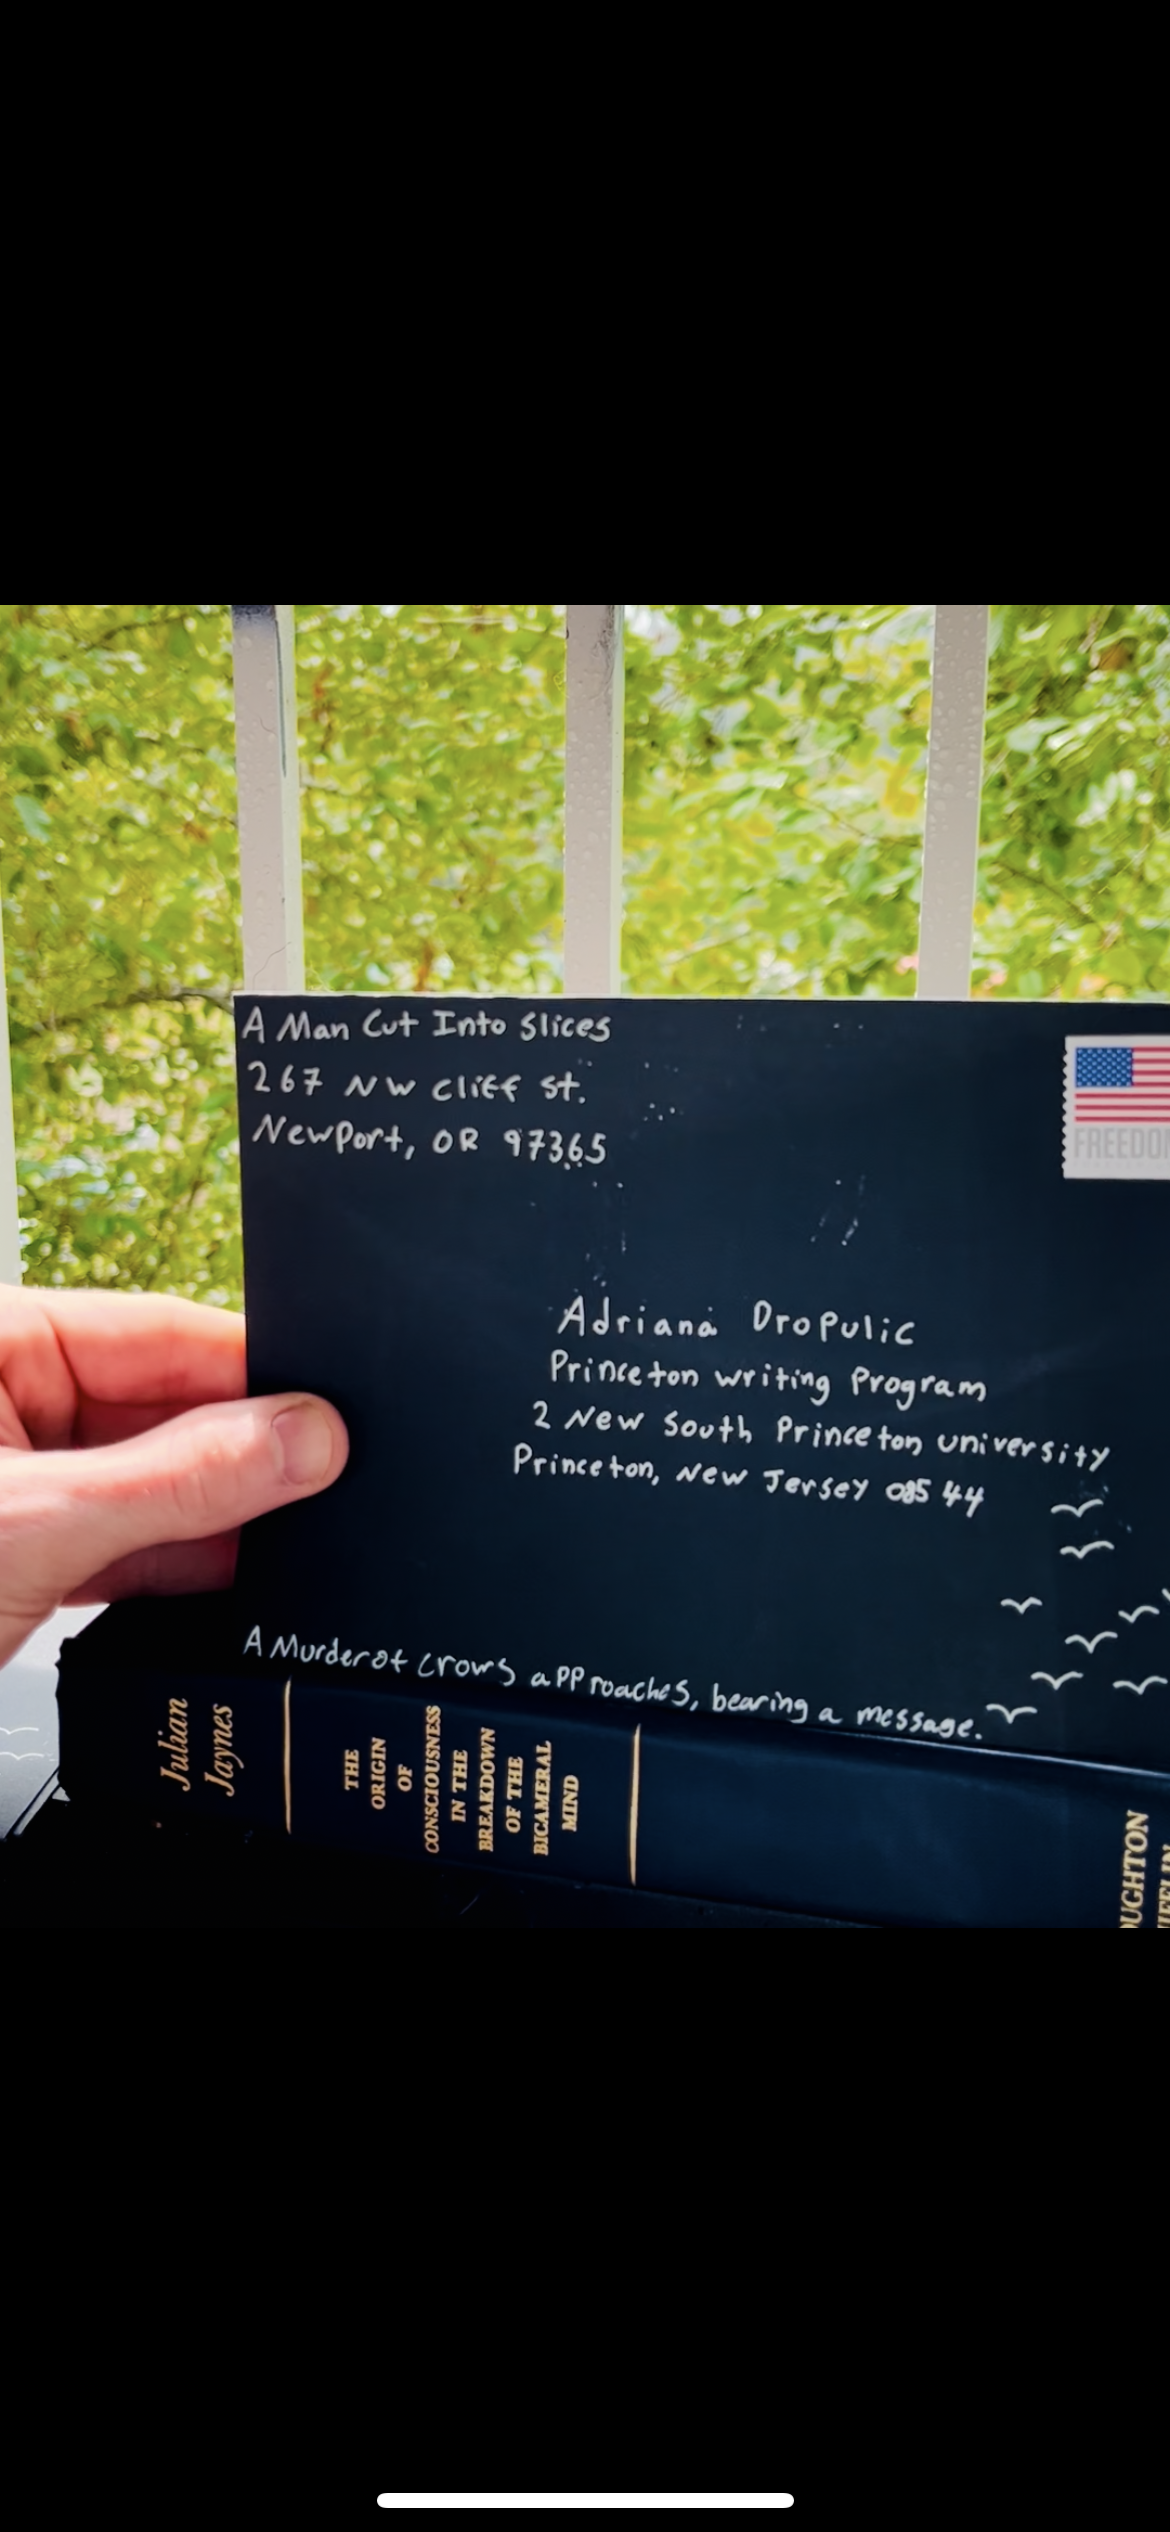 A Man Cut Into Slices
267 NW Cliff St.
Newport, OR 97365
FREEDOM
Adriana Dropulic
Princeton writing Program
2 New South Princeton university
Princeton, New Jersey 08544
A Murder of crows approaches, bearing a message.
Julian
Jaynes
THE
ORIGIN
OF
CONSCIOUSNESS
IN THE
BREAKDOWN
OF THE
BICAMERAL
MIND
OUGHTON